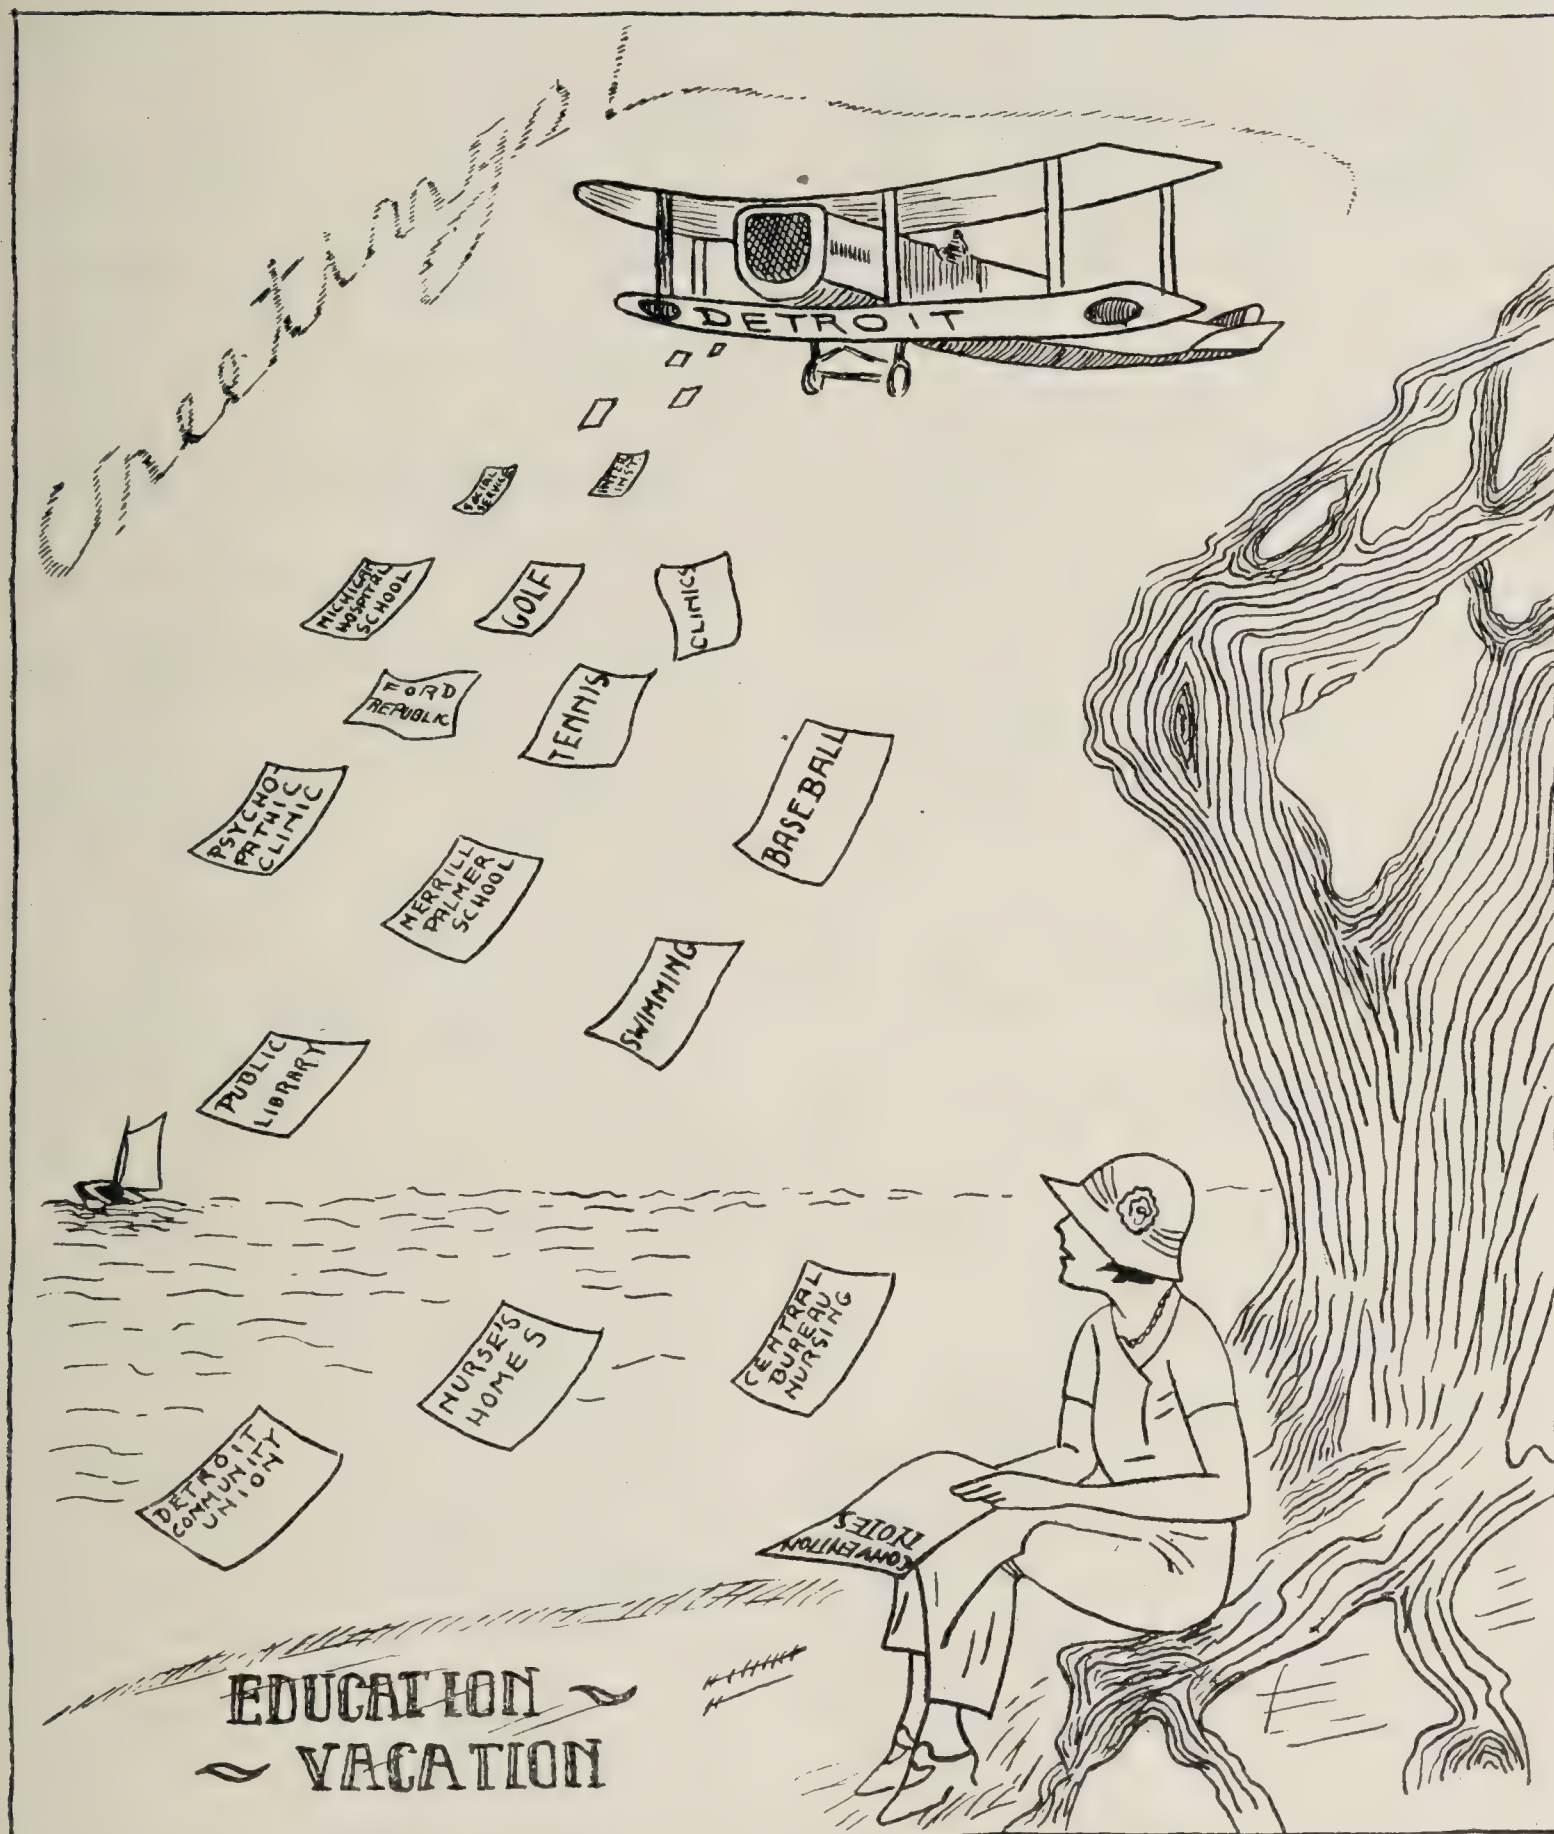 Greetings!
DETROIT
SOCIAL
SERVICE
INTER
INST.
MICHIGAN
HOSPITAL
SCHOOL
GOLF
CLINICS
FORD
REPUBLIC
TENNIS
BASEBALL
PSYCHO-
PATHIC
CLINIC
MERRILL
PALMER
SCHOOL
SWIMMING
PUBLIC
LIBRARY
CENTRAL
BUREAU
NURSING
NURSE'S
HOMES
DETROIT
COMMUNITY
UNION
CONVENTION
NOTES
EDUCATION ~
~ VACATION